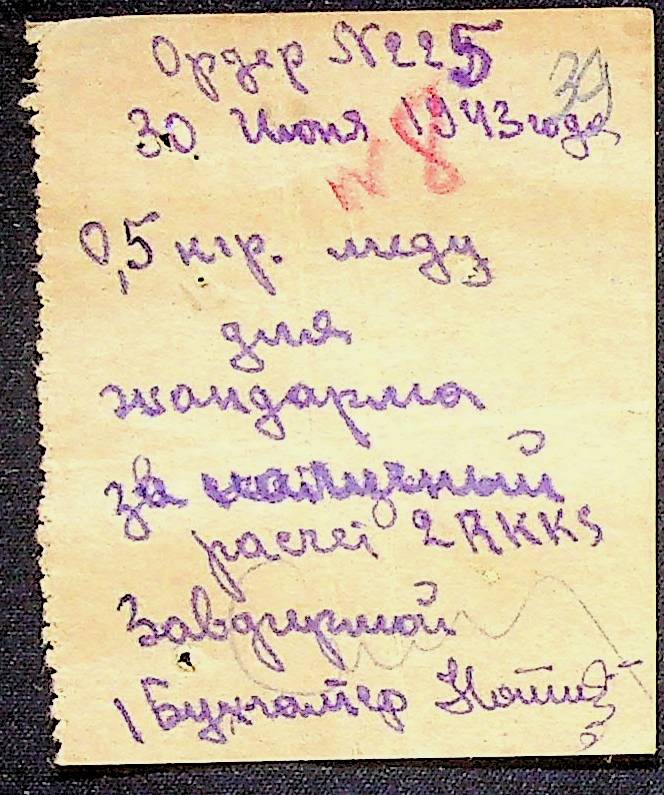 Ордер N225
39
30 Июня 1943 года
N 8
0,5 кгр. меду
для
жандарма
за наличный
расчет 2 RKKS
Завфирмой
Бухгалтер